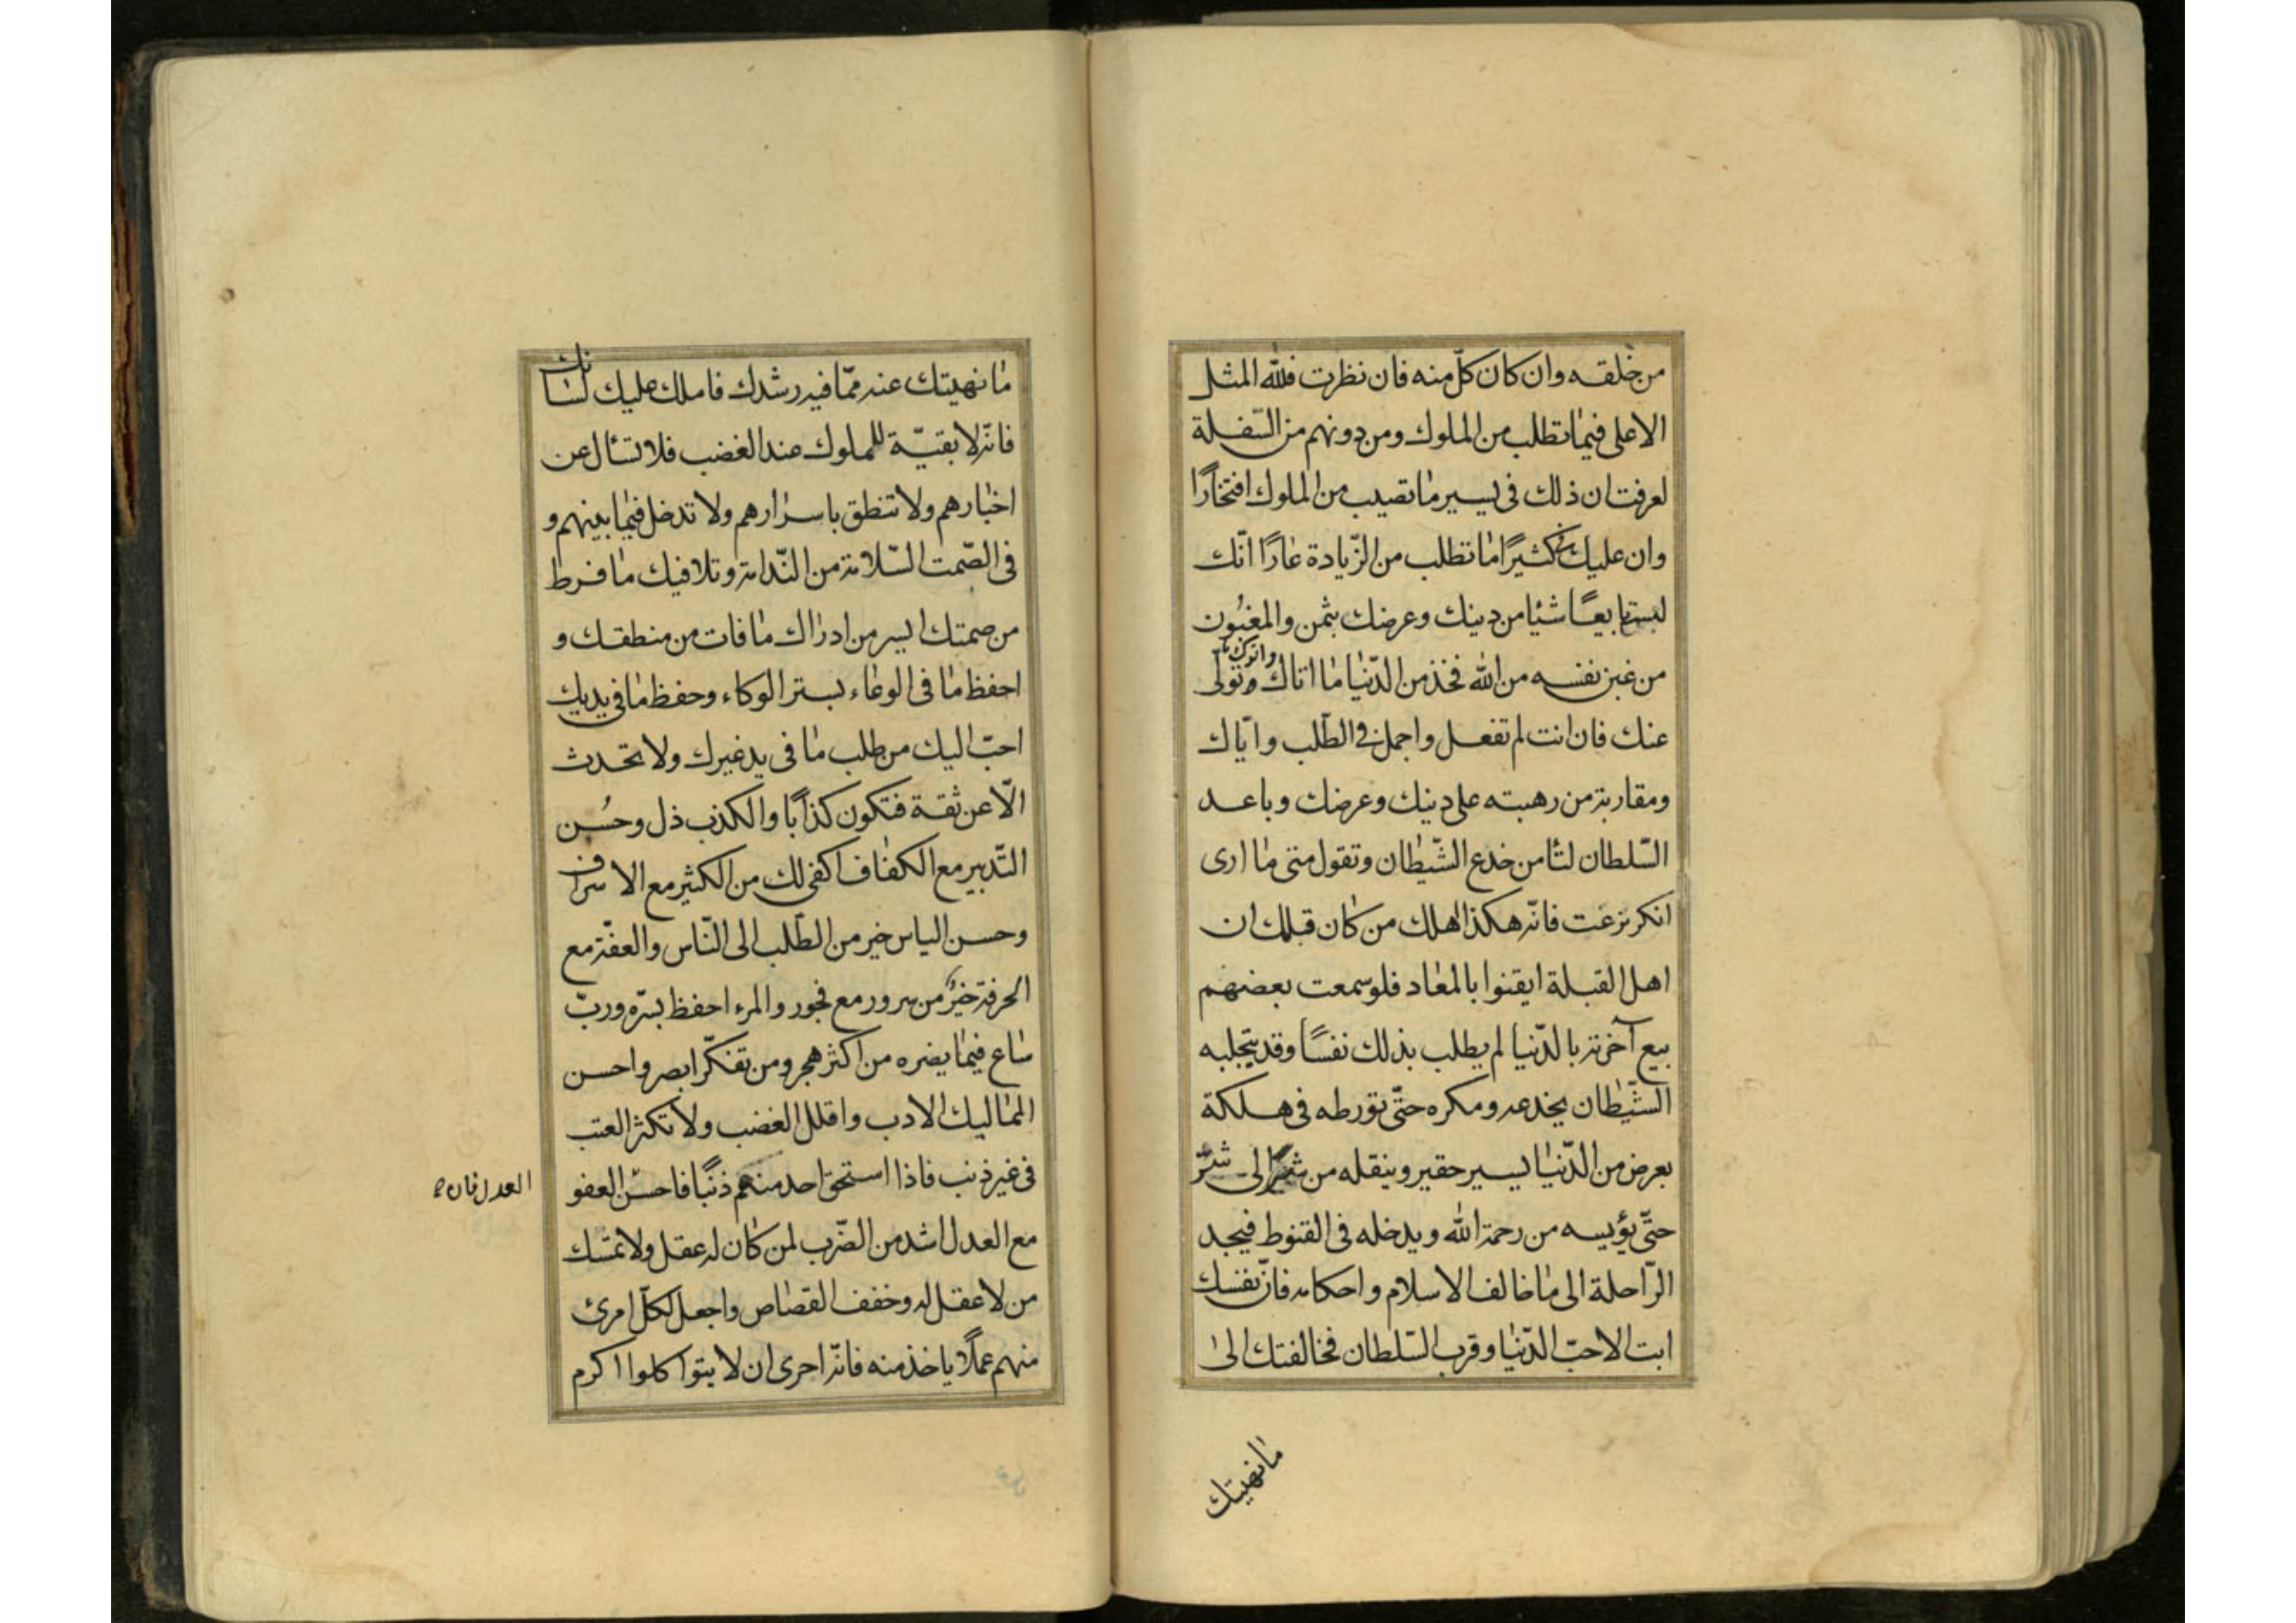 من خلقه وان كان كلّ منه فان نظرت فللّه المثل
الاعلى فيما تطلب من الملوك ومن دونهم من السّفلة
لعرفت ان ذلك فى يسير ما تصيب من الملوك افتخارًا
وان عليك كثيرًا ما تطلب من الزّيادة عارًا انّك
لست بايعًا شيئا من دينك وعرضك بثمن والمغبُون
من غبن نفسه من الله فخذ من الدّنيا ما اتاك وتولّى
واترك ما
عنك فان انت لم تفعل واجمل فى الطّلب وايّاك
ومقاربة من رهبته على دينك وعرضك وباعد
السّلطان لتأمن خدع الشّيطان وتقول متى ما ارى
انكر نزعت فانّه هكذا هلك من كان قبلك ان
اهل القبلة ايقنوا بالمعاد فلو سمعت بعضهم
بيع آخرته بالدّنيا لم يطلب بذلك نفسًا وقد يتجلبه
الشّيطان بخدعه ومكره حتّى تورطه فى هلكة
بعرض من الدّنيا يسير حقير وينقله من شرّ الى شرّ
حتّى يؤيسه من رحمة الله ويدخله فى القنوط فيجد
الرّاحلة الى ما خالف الاسلام واحكامه فانّ نفسك
ابت الا حبّ الدّنيا وقرب السّلطان فخالفتك الى
ما نهيتك
ما نهيتك عنه ممّا فيه رشدك فاملك عليك لسانك
فانّه لا بقيّة للملوك عند الغضب فلا تسأل عن
اخبارهم ولا تنطق باسرارهم ولا تدخل فيما بينهم و
فى الصّمت السّلامة من النّدامة وتلافيك ما فرط
من صمتك ايسر من ادراك ما فات من منطقك و
احفظ ما فى الوعاء بستر الوكاء وحفظ ما فى يديك
احبّ اليك من طلب ما فى يد غيرك ولا تحدث
الّا عن ثقة فتكون كذّابًا والكذب ذل وحُسن
التّدبير مع الكفاف اكفى لك من الكثير مع الاسراف
وحسن الياس خير من الطّلب الى النّاس والعفّة مع
الحرفة خيرٌ من سرور مع فجور والمرء احفظ بسرّه وربّ
ساع فيما يضره من اكثر هجر ومن تفكّر ابصر واحسن
المماليك الادب واقلل الغضب ولا تكثر العتب
فى غير ذنب فاذا استحق احد منهم ذنبًا فاحسن العفو
العدل فان
مع العدل اشد من الضّرب لمن كان له عقل ولا تمسّك
من لا عقل له وخفف القصاص واجعل لكلّ امرئ
منهم عملًا ياخذ منه فانّه احرى ان لا يتواكلوا اكرم